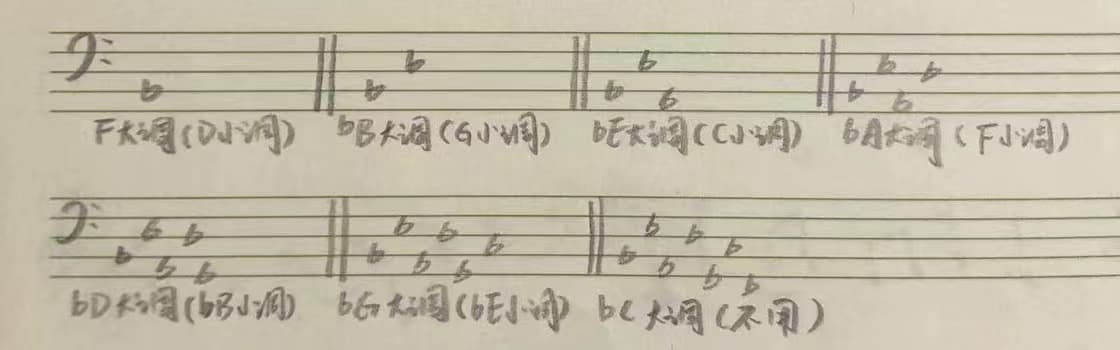 F大调(D小调) bB大调(G小调) bE大调(C小调) bA大调(F小调)
bD大调(bB小调) bG大调(bE小调) bC大调(不用)